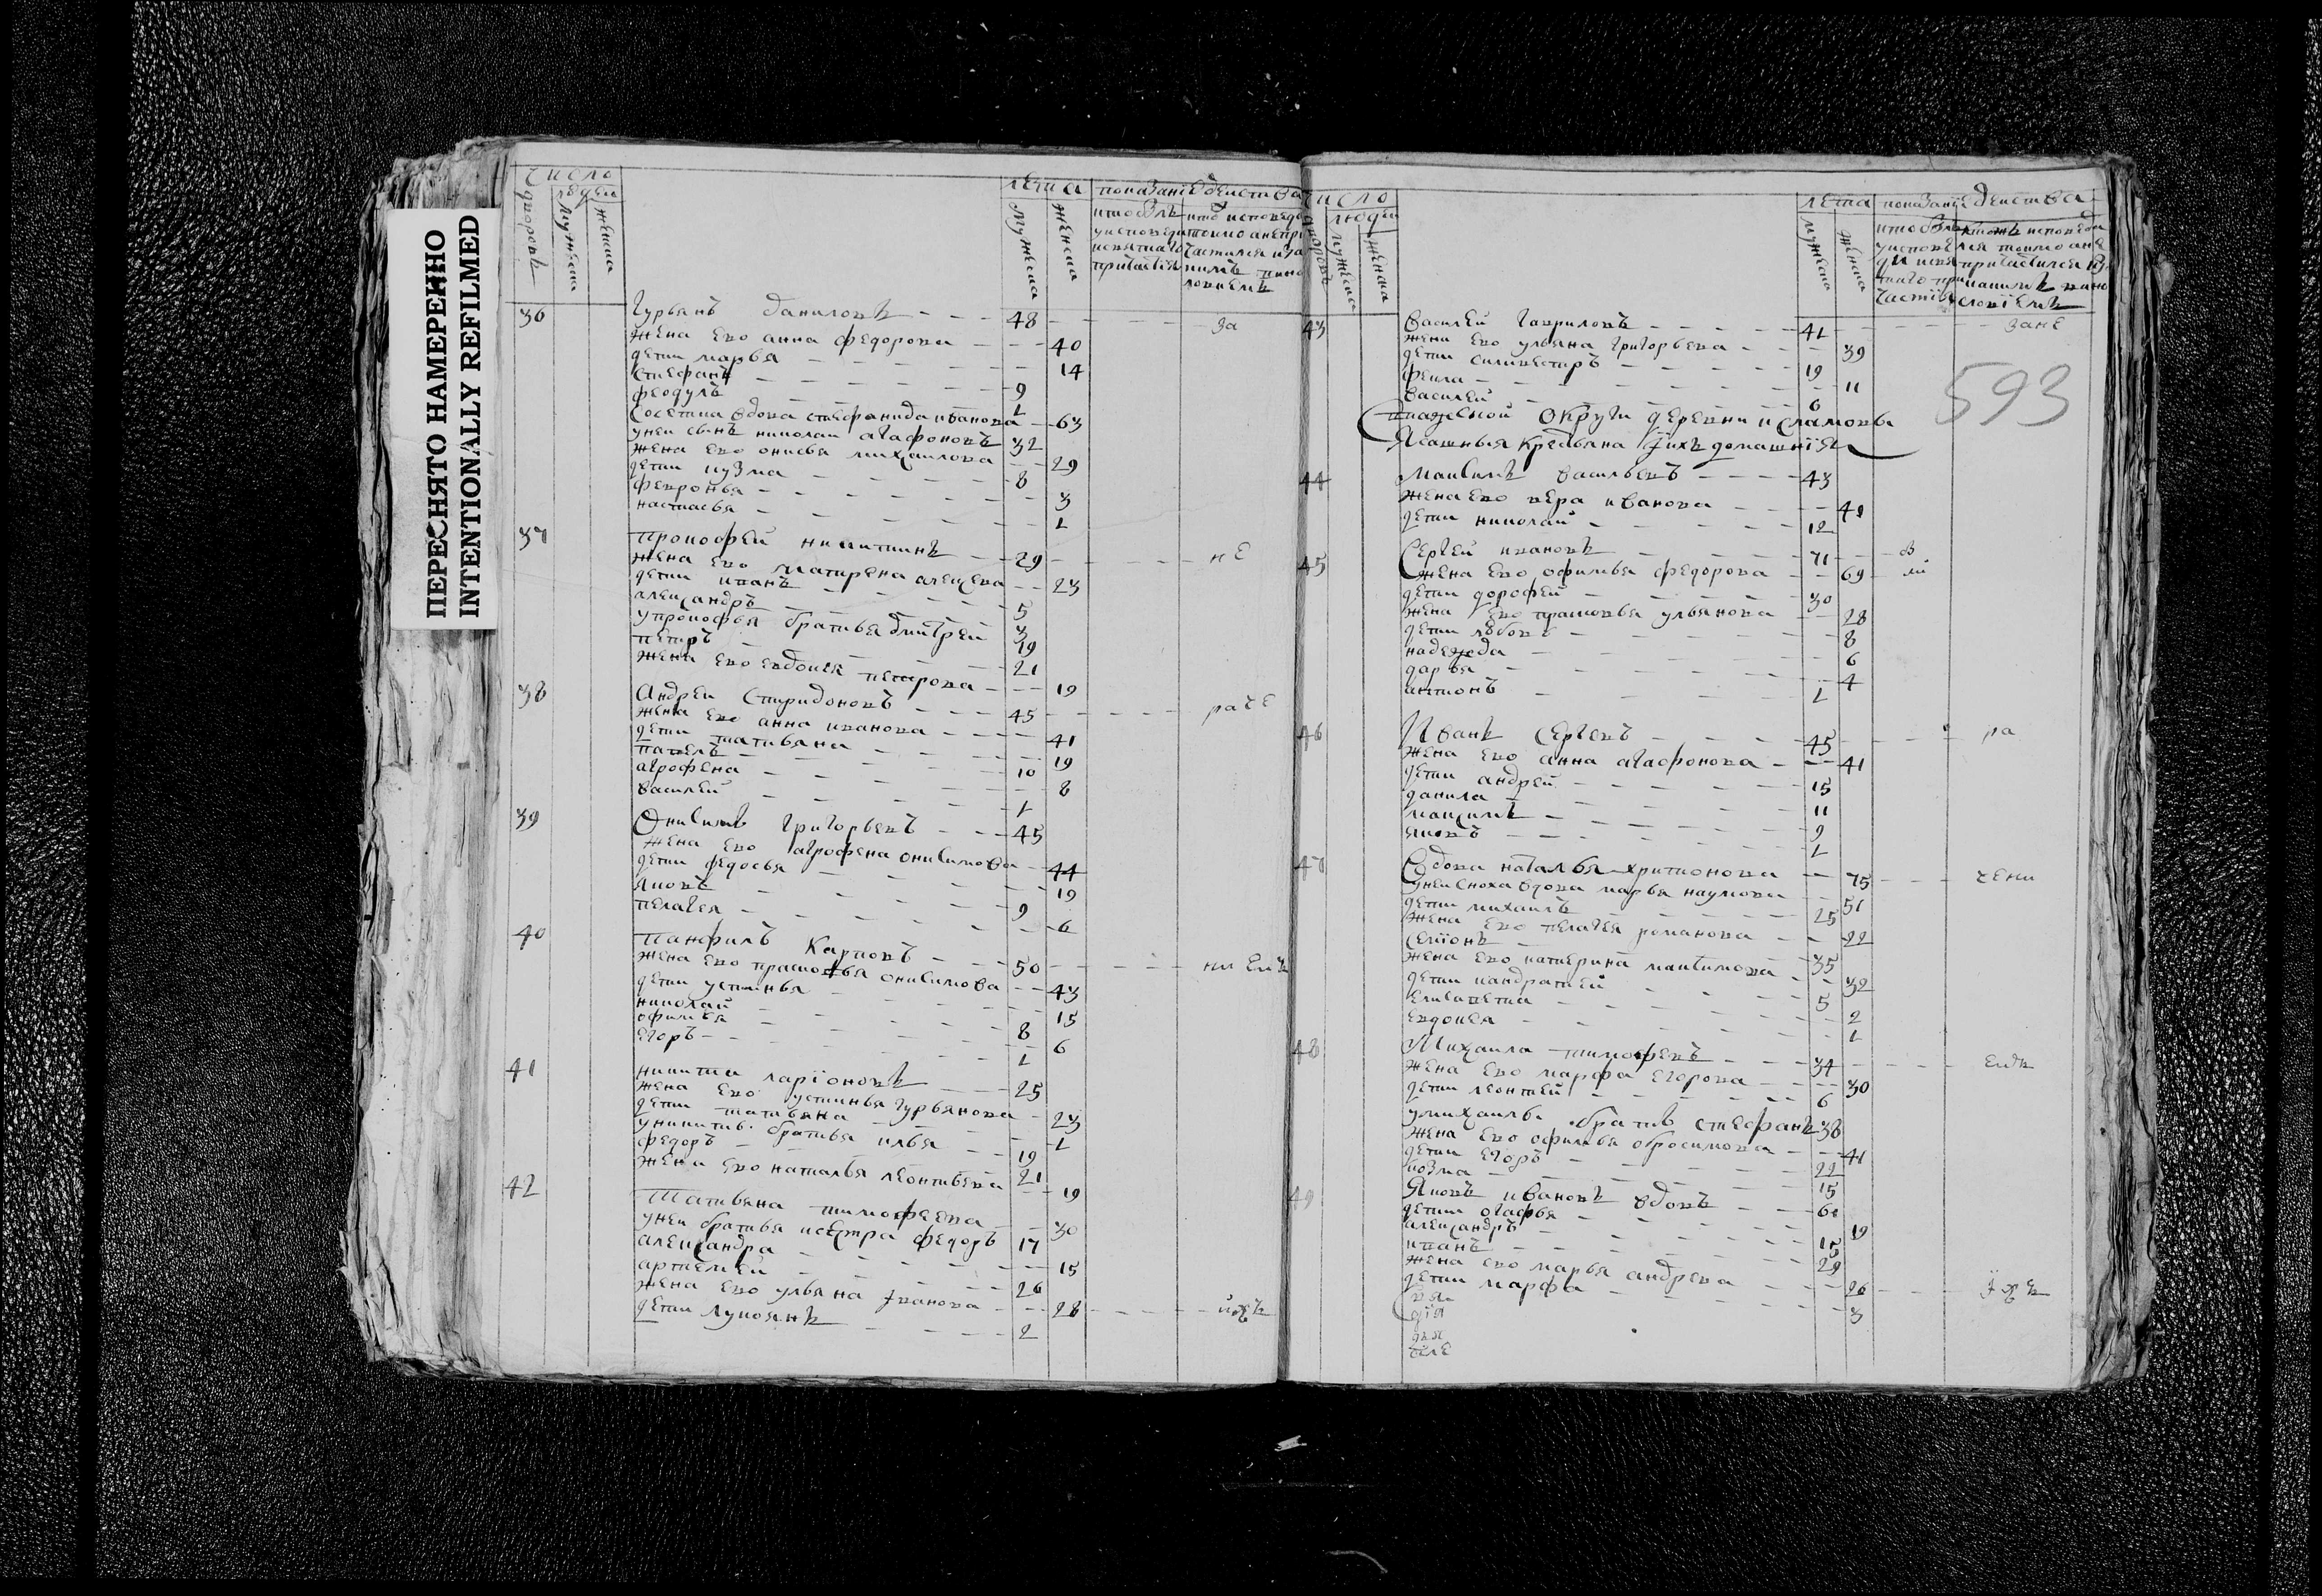 ПЕРЕСНЯТО НАМЕРЕННО
INTENTIONALLY REFILMED
число
людей
дворовъ
мужеска
женска
лета
мужеска
женска
показание действа
36 Гурьянъ даниловъ 48 за
жена ево анна федорова 40
дети марья 14
стефанъ 9
феодулъ 1
Соседка вдова стефанида иванова 63
унеи сынъ николаи агафоновъ 32
жена ево онисья михаилова 29
дети кузма 8
февронья 3
настасья 1
37 прокофеи никитинъ 29 не
жена ево матрена алексева 23
дети иванъ 5
александръ 3
упрокофья братья дмитреи 19
петръ 21
жена ево евдокея петрова 19
38 Андреи Спиридоновъ 45 раче
жена ево анна иванова 41
дети татьяна 19
павелъ 10
агрофена 8
василеи 1
39 Онисимъ григорьевъ 45
жена ево агрофена онисимова 44
дети федосья 19
яковъ 9
пелагея 6
40 панфилъ Карповъ 50
жена ево прасковья онисимова 43
дети устинья 15
николаи 8
офимья 6
егоръ 1
41 никита ларионовъ 25
жена ево устинья гурьянова 23
дети татьяна 1
уникиты братья илья 19
федоръ 21
жена ево наталья леонтьева 19
42 Татьяна тимофеева 30
унеи братья исестра федоръ 17
александра 15
артемеи 26
жена ево ульяна iванова 28 ихъ
дети лукоянъ 2
число
людей
дворовъ
мужеска
женска
лета
мужеска
женска
показание действа
593
43 Василеи гавриловъ 41 зане
жена ево ульяна григорьева 39
дети силивестръ 19
фекла 11
василеи 6
округи деревни исламовы
Ясашныя крестьяна iихъ домашнiя
44 Максимъ васильевъ 43
жена ево вера иванова 41
дети николаи 12
45 Сергеи ивановъ 71
жена ево офимья федорова 69
дети дорофеи 30
жена ево прасковья ульянова 28
дети любовь 8
надежда 6
дарья 4
антонъ 1
46 Иванъ Сергевъ 45 ра
жена ево анна агафонова 41
дети андреи 15
данила 11
максимъ 9
яковъ 1
47 Вдова наталья харитонова 75 чени
унеи сноха вдова марья наумова 51
дети михаилъ 25
жена ево пелагея романова 22
семiонъ 35
жена ево катерина максимова 32
дети кандратеи 5
елисавета 2
евдокея 1
48 Михаила тимофевъ 34
жена ево марфа егорова 30
дети леонтеи 6
умихаилы братъ стефанъ 38
жена ево офимья обросимова 41
дети егоръ 22
козма 15
49 Яковъ ивановъ вдовъ 60
дети агафья 19
александръ 15
иванъ 29
жена ево марья андрева 26 iхъ
дети марфа 3